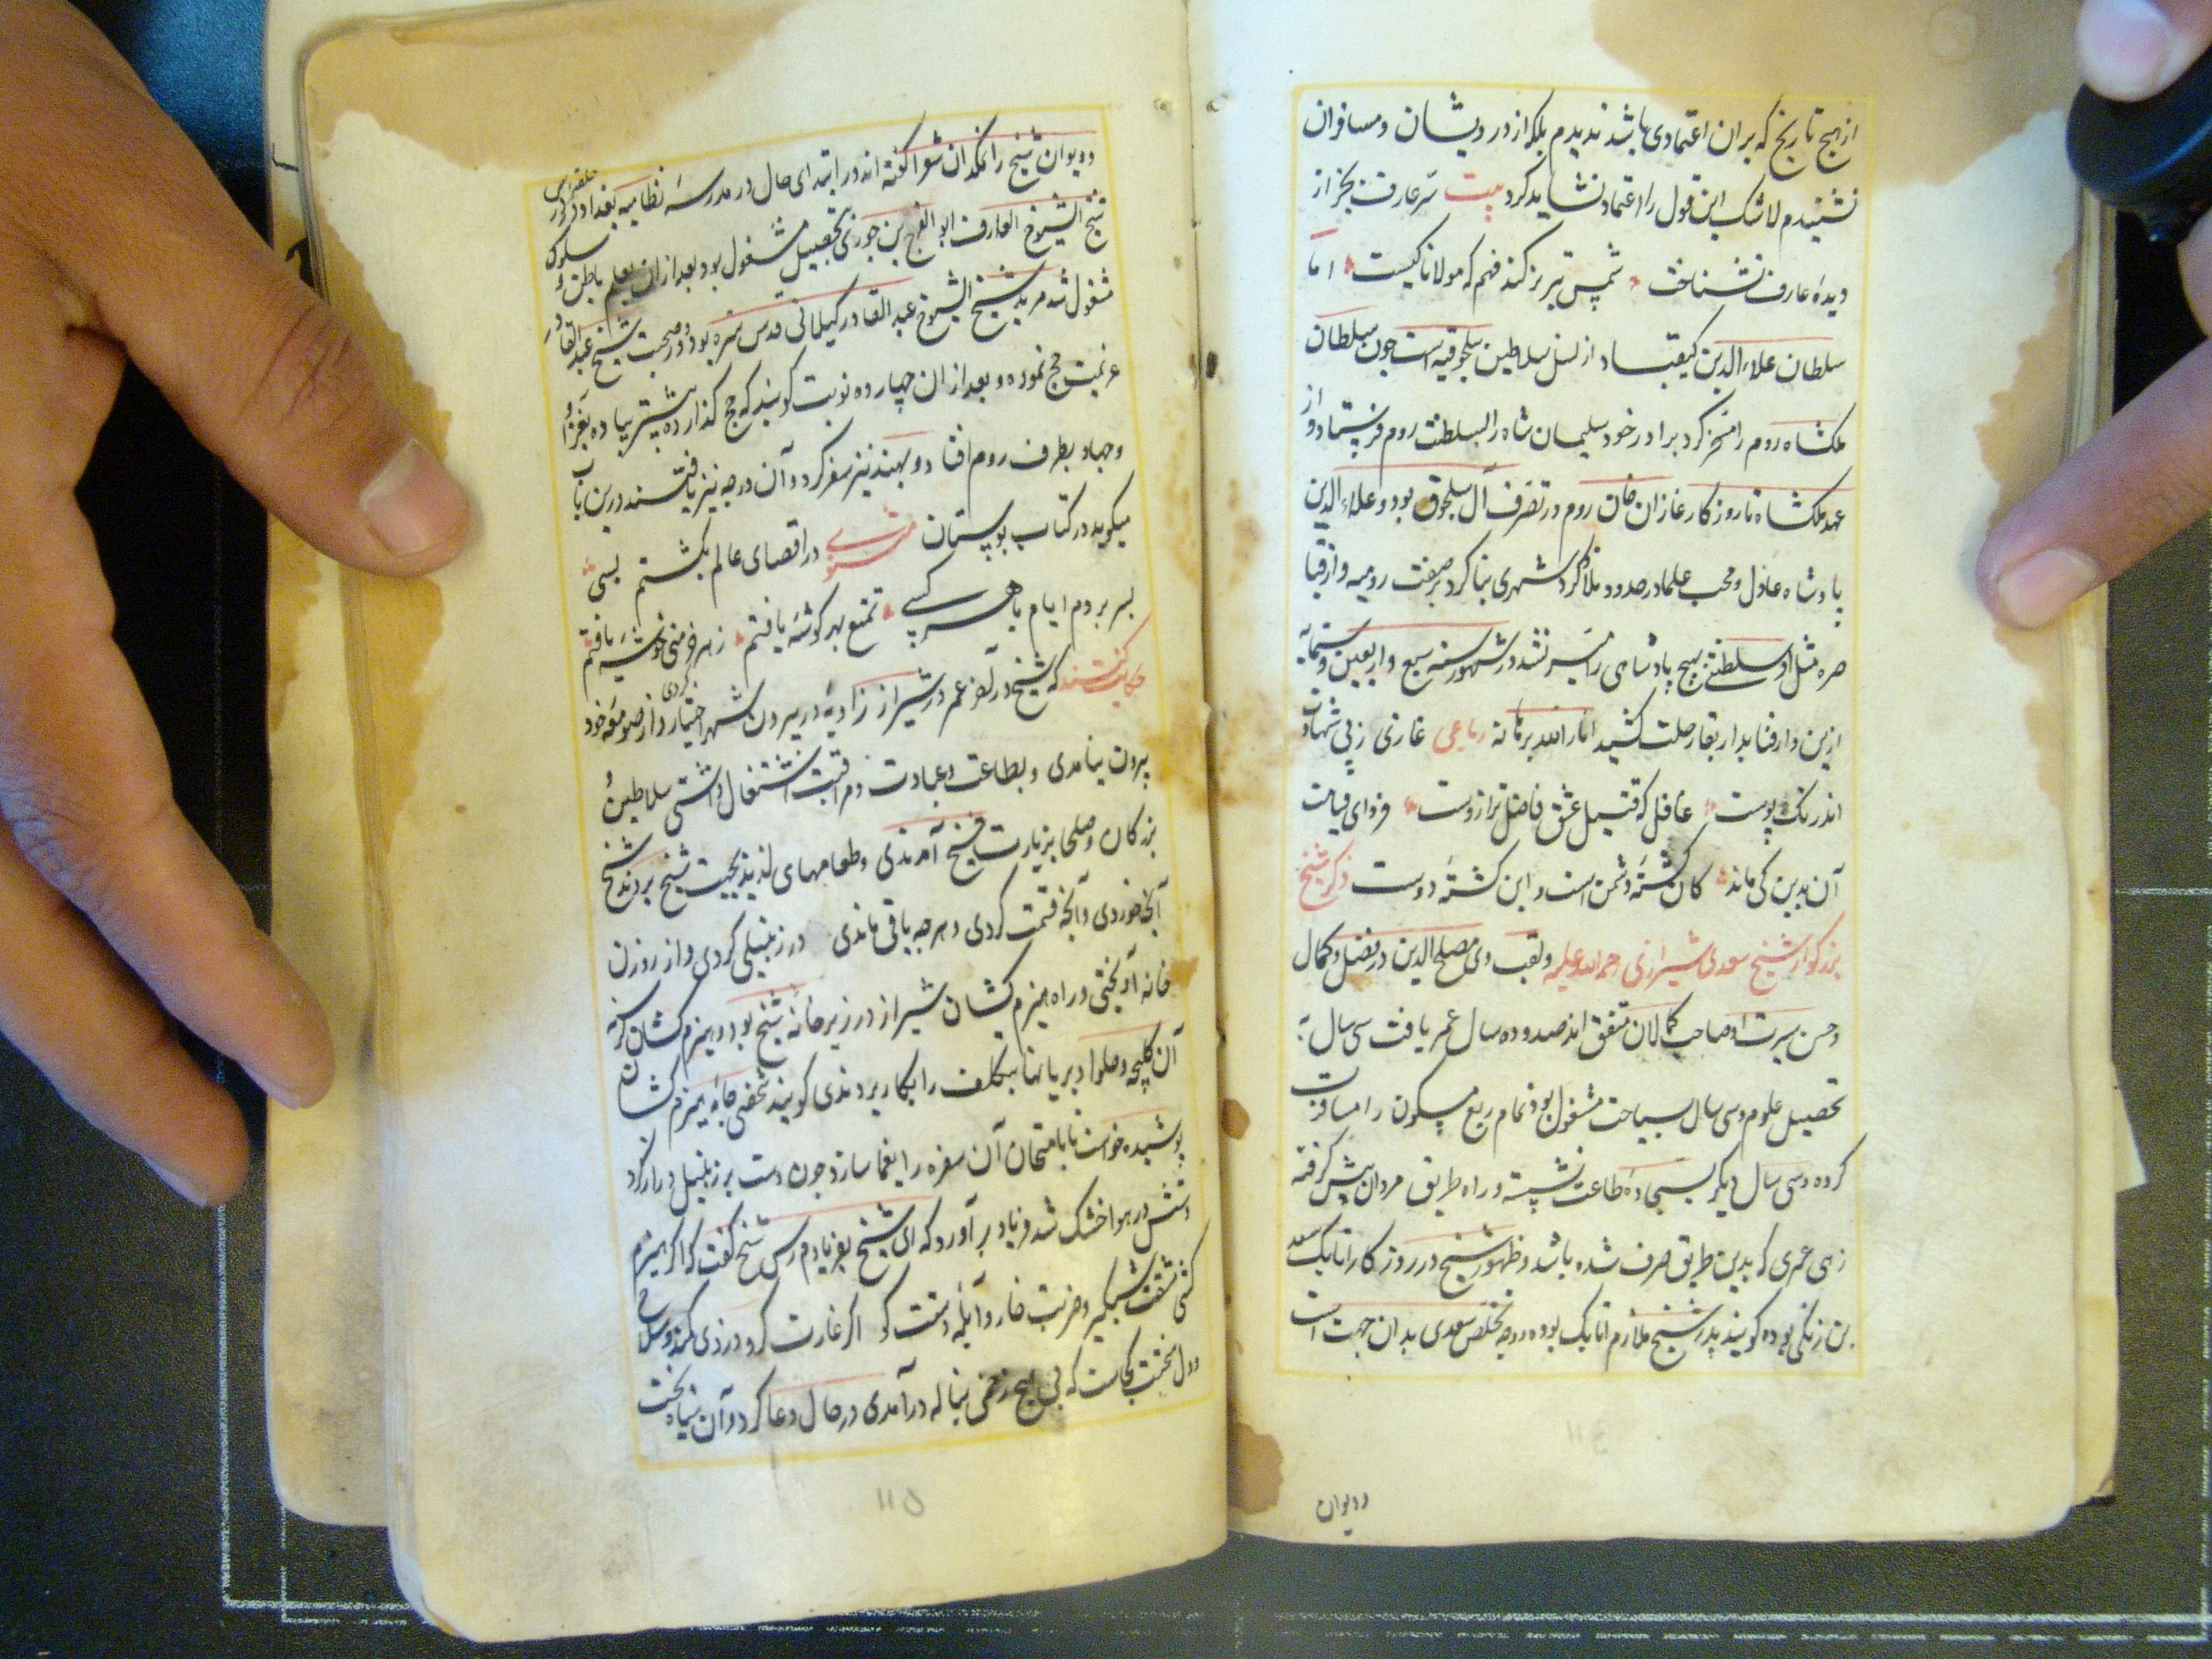 از هیچ تاریخ که بران اعتمادی باشد ندیدم بلکه از درویشان و مسافران
نشنیدم لاشک این قول را اعتماد نشاید کرد بیت سر عارف بجز از
دیدهٔ عارف نشناخت شمس تبریز کند فهم که مولانا کیست اما
سلطان علاء الدین کیقباد از نسل سلاطین سلجوقیه است چون سلطان
ملکشاه روم را مسخر کرد برادر خود سلیمان شاه را بسلطنت روم فرستاد و از
عهد ملکشاه تا روزکار غازان خان روم در تصرف آل سلجوق بود و علاء الدین
پادشاه عادل و محب علما در حدود ملاذکرد شهری بنا کرد بر صفت رومیه و از قیا
صره مثل او سلطنت هیچ پادشاهی را میسر نشد در شهور سنه سبع و اربعین و ستمایه
ازین دار فنا بدار بقا رحلت کشید انار الله برهانه رباعی غازی ز پی شهادت
اندر تک و پوست غافل که قتیل عشق فاضلتر ازوست فردای قیامت
آن بدین کی ماند کان کشتهٔ دشمن است و این کشتهٔ دوست ذکر شیخ
بزرکوار شیخ سعدی شیرازی رحمة الله علیه و لقب وی مصلح الدین در فضل و کمال
و حسن سیرت او صاحب کمالان متفق اند صد و ده سال عمر یافت سی سال به
تحصیل علوم و سی سال بسیاحت مشغول بود و تمام ربع مسکون را مسافرت
کرده و سی سال دیکر بسجادهٔ طاعت نشسته و راه طریق مردان پیش کرفته
زهی عمری که بدین طریق صرف شده باشد و ظهور شیخ در روزکار اتابک سعد
بن زنکی بوده کویند پدر شیخ ملازم اتابک بوده و وجه تخلص سعدی بدان جهت است
ودیوان
ودیوان شیخ را نمکدان شعرا کفته اند در ابتدای حال در مدرسهٔ نظامیه بغداد در حلقه درس
شیخ الشیوخ العارف ابو الفرج بن جوزی بتحصیل مشغول بود بعد از ان بعلم باطن و سلوک
مشغول شد مرید شیخ الشیوخ عبد القادر کیلانی قدس سره بود و در صحبت شیخ عبد القادر
عزیمت حج نموده و بعد از ان چهارده نوبت کویند که حج کذارده بیشتر پیاده بغزا و
وجهاد بطرف روم افتاد و بهند نیز سفر کرد و آن درجه نیز یافتند درین باب
میکوید در کتاب بوستان مثنوی در اقصای عالم بکشتم بسی
بسر بردم ایام با هر کسی تمتع بهر کوشه یافتم ز هر خرمنی خوشه یافتم
حکایت کنند که شیخ در آخر عمر در شیراز زاویه در بیرون شهر اختیار کردی و از صومعه خود
بیرون نیامدی و بطاعت و عبادت و مراقبت اشتغال داشتی سلاطین و
بزرکان و صلحا بزیارت شیخ آمدندی و طعامهای لذیذ بجهت شیخ بردند شیخ
آنچه خوردی و آنچه قسمت کردی و هرچه باقی ماندی در زنبیلی کردی و از روزن
خانه آویختی و راه هیزم کشان شیراز در زیر خانه شیخ بود و هیزم کشان کرسنه
آن کلیچه و حلوا و بریانها بتکلف را بکار بردندی کویند شخصی جامه هیزم کشان
پوشیده خواست تا بامتحان آن سفره را یغما سازد چون دست بر زنبیل دراز کرد
دستش در هوا خشک شد فریاد بر آورد که ای شیخ بفریادم رس شیخ کفت که اکر هیزم
کشی مشقت شبکیر و ضربت خار و آبله دستت کو اکر غارت کر و دزدی کمند و سلاح
و دل سختت کجاست که بی هیچ زخمی بناله درآمدی در حال دعا کرد و آن سیاه بخت
۱۱۵